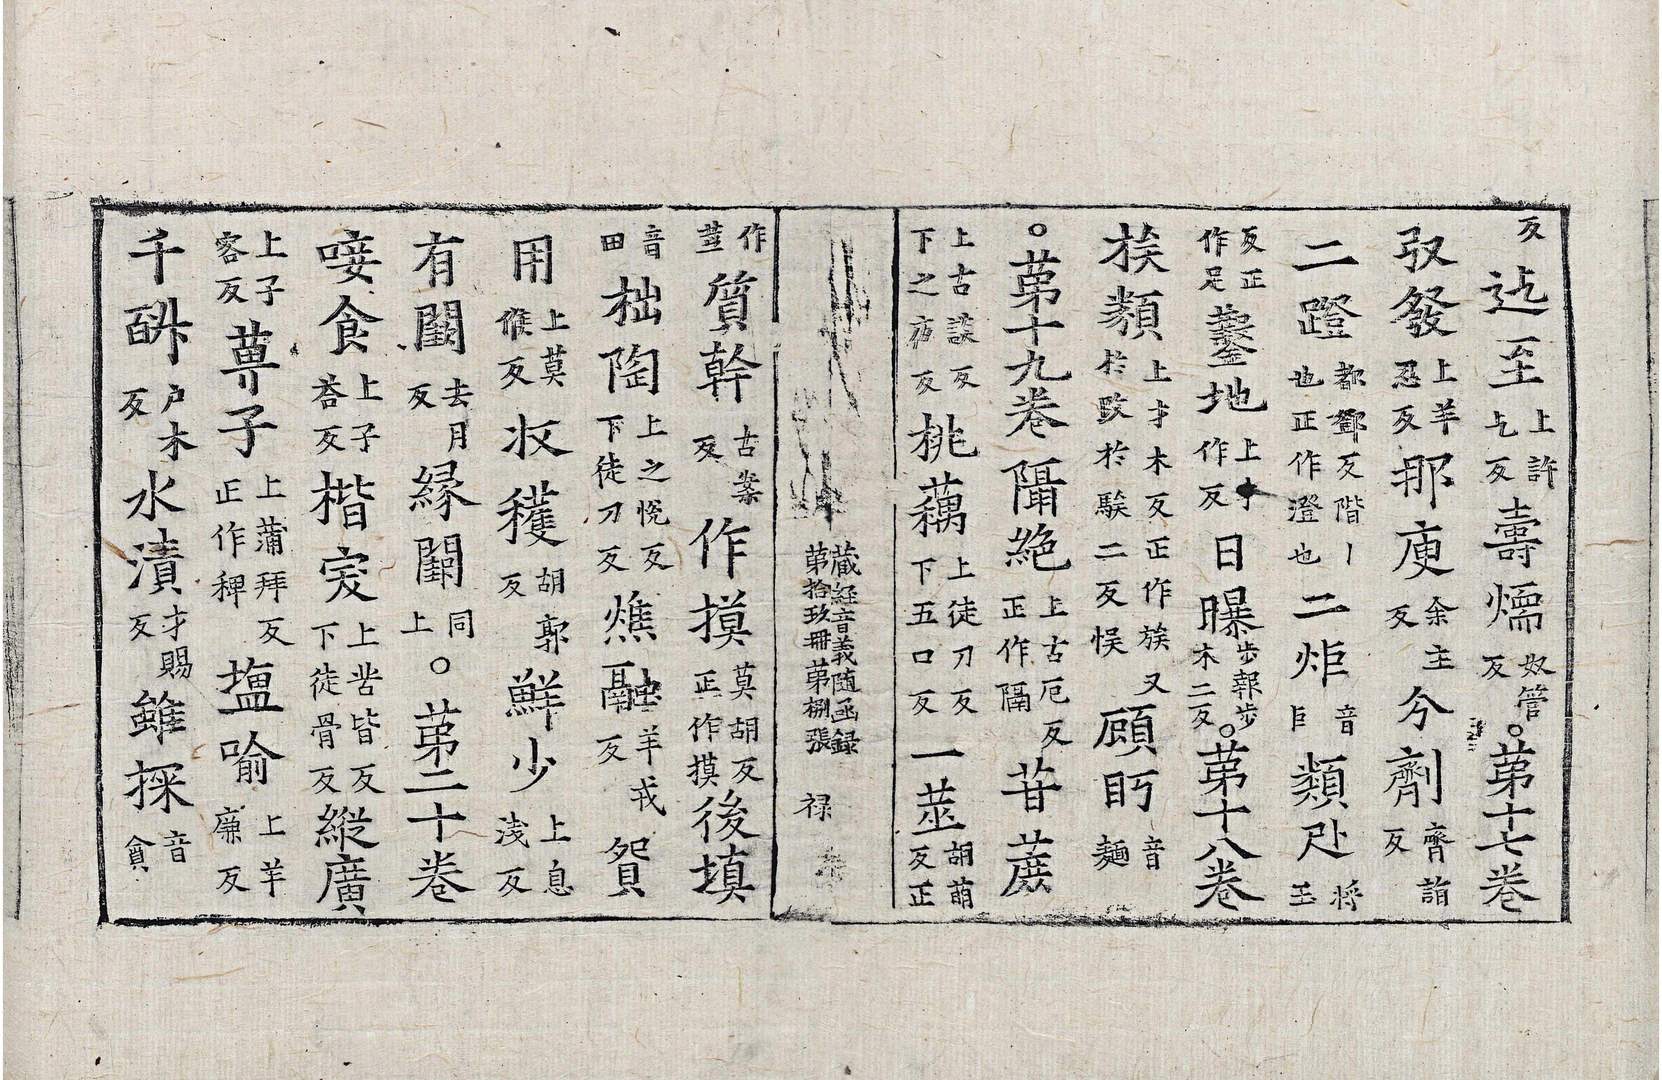 反迄至上許乞反壽燸奴管反。苐十七卷
㕛發上羊忍反那庾余主反今劑齊詣反
二蹬都鄧反階丨也正作澄也二炬音巨類𨑒將
反正作足鏨地上才作反日曝步報步木二反。苐十八卷
挨類上才木反正作族又於改於騃二反悮顧眄音麺
。苐十九卷隔絶上古厄反正作隔苷蔗
上古談反下之夜反桃藕上徒刀反下五口反一莖胡萌反正
藏経音義随函録苐拾玖冊苐捌張 禄
作莖質幹古案反作摸莫胡反正作摸後填
音田柮陶上之恱反下徒刀反燋融羊戎反貿
用上莫候反收穫胡郭反鮮少上息淺反
有闋去月反縁闋同上。苐二十卷
唼食上子荅反楷突上苦皆反下徒骨反縱廣
上子容反萆子上蒲拜反正作稗塩喻上羊廉反
千㪷户木反水漬才賜反雖探音貪